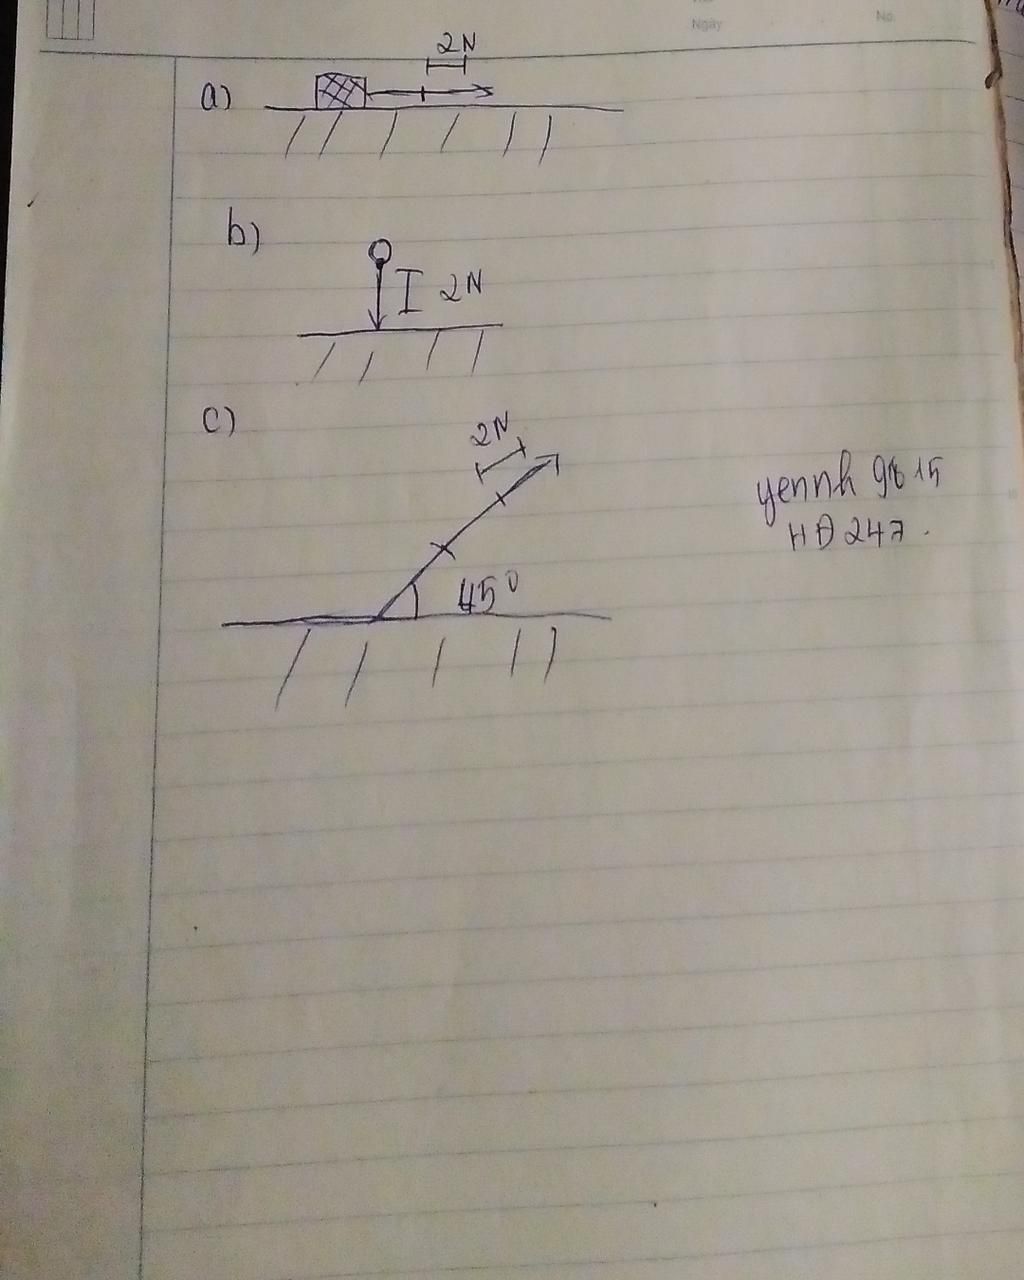 Ngày
No.
2N
a)
b)
2N
c)
2N
45°
yennh 9815
HĐ 247.